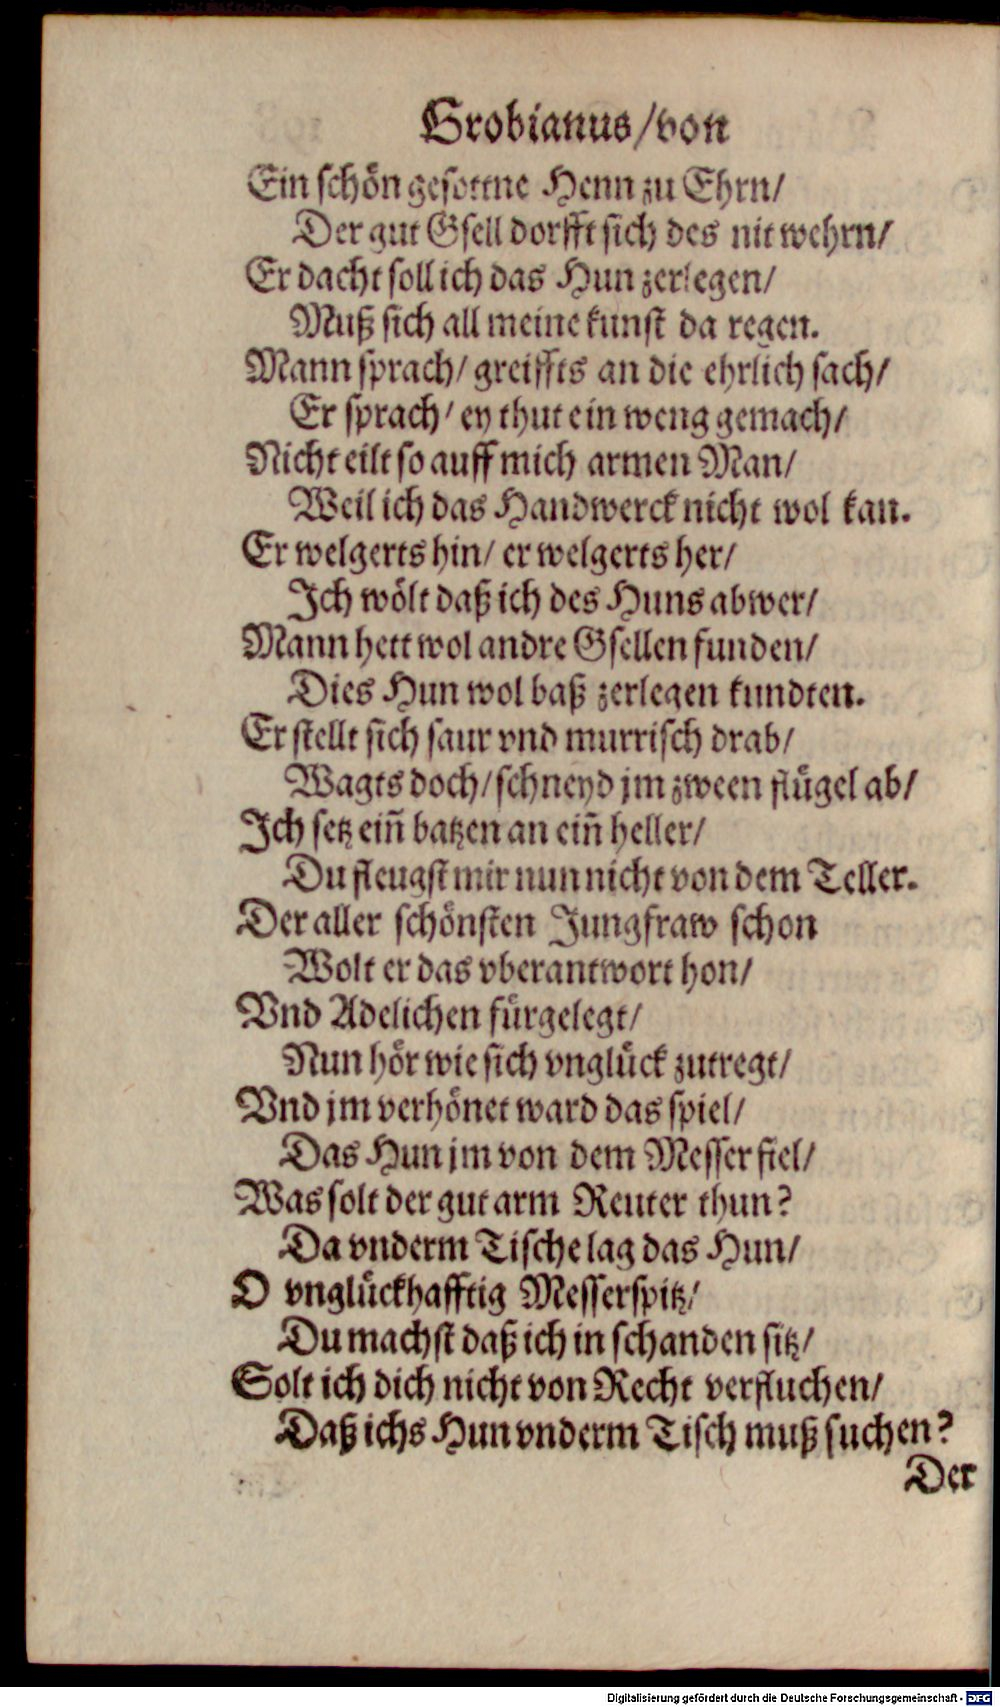 Grobianus/von
Ein schoͤn gesottne Henn zu Ehrn/
Der gut Gsell dorfft sich des nit wehrn/
Er dacht soll ich das Hun zerlegen/
Muß sich all meine kunst da regen.
Mann sprach/ greiffts an die ehrlich sach/
Er sprach/ ey thut ein weng gemach/
Nicht eilt so auff mich armen Man/
Weil ich das Handwerck nicht wol kan.
Er welgerts hin/ er welgerts her/
Ich woͤlt daß ich des Huns ab wer/
Mann hett wol andre Gsellen funden/
Dies Hun wol baß zerlegen kundten.
Er stellt sich saur vnd murrisch drab/
Wagts doch/ schneyd jm zween fluͤgel ab/
Ich setz ein̄ batzen an ein̄ heller/
Du fleugst mir nun nicht von dem Teller.
Der aller schoͤnsten Jungfraw schon
Wolt er das vberantwort hon/
Vnd Adelichen fuͤrgelegt/
Nun hoͤr wie sich vngluͤck zutregt/
Vnd jm verhoͤnet ward das spiel/
Das Hun jm von dem Messer fiel/
Was solt der gut arm Reuter thun?
Da vnderm Tische lag das Hun/
O vngluͤckhafftig Messerspitz/
Du machst daß ich in schanden sitz/
Solt ich dich nicht von Recht verfluchen/
Daß ichs Hun vnderm Tisch muß suchen?
Der
Digitalisierung gefördert durch die Deutsche Forschungsgemeinschaft - DFG